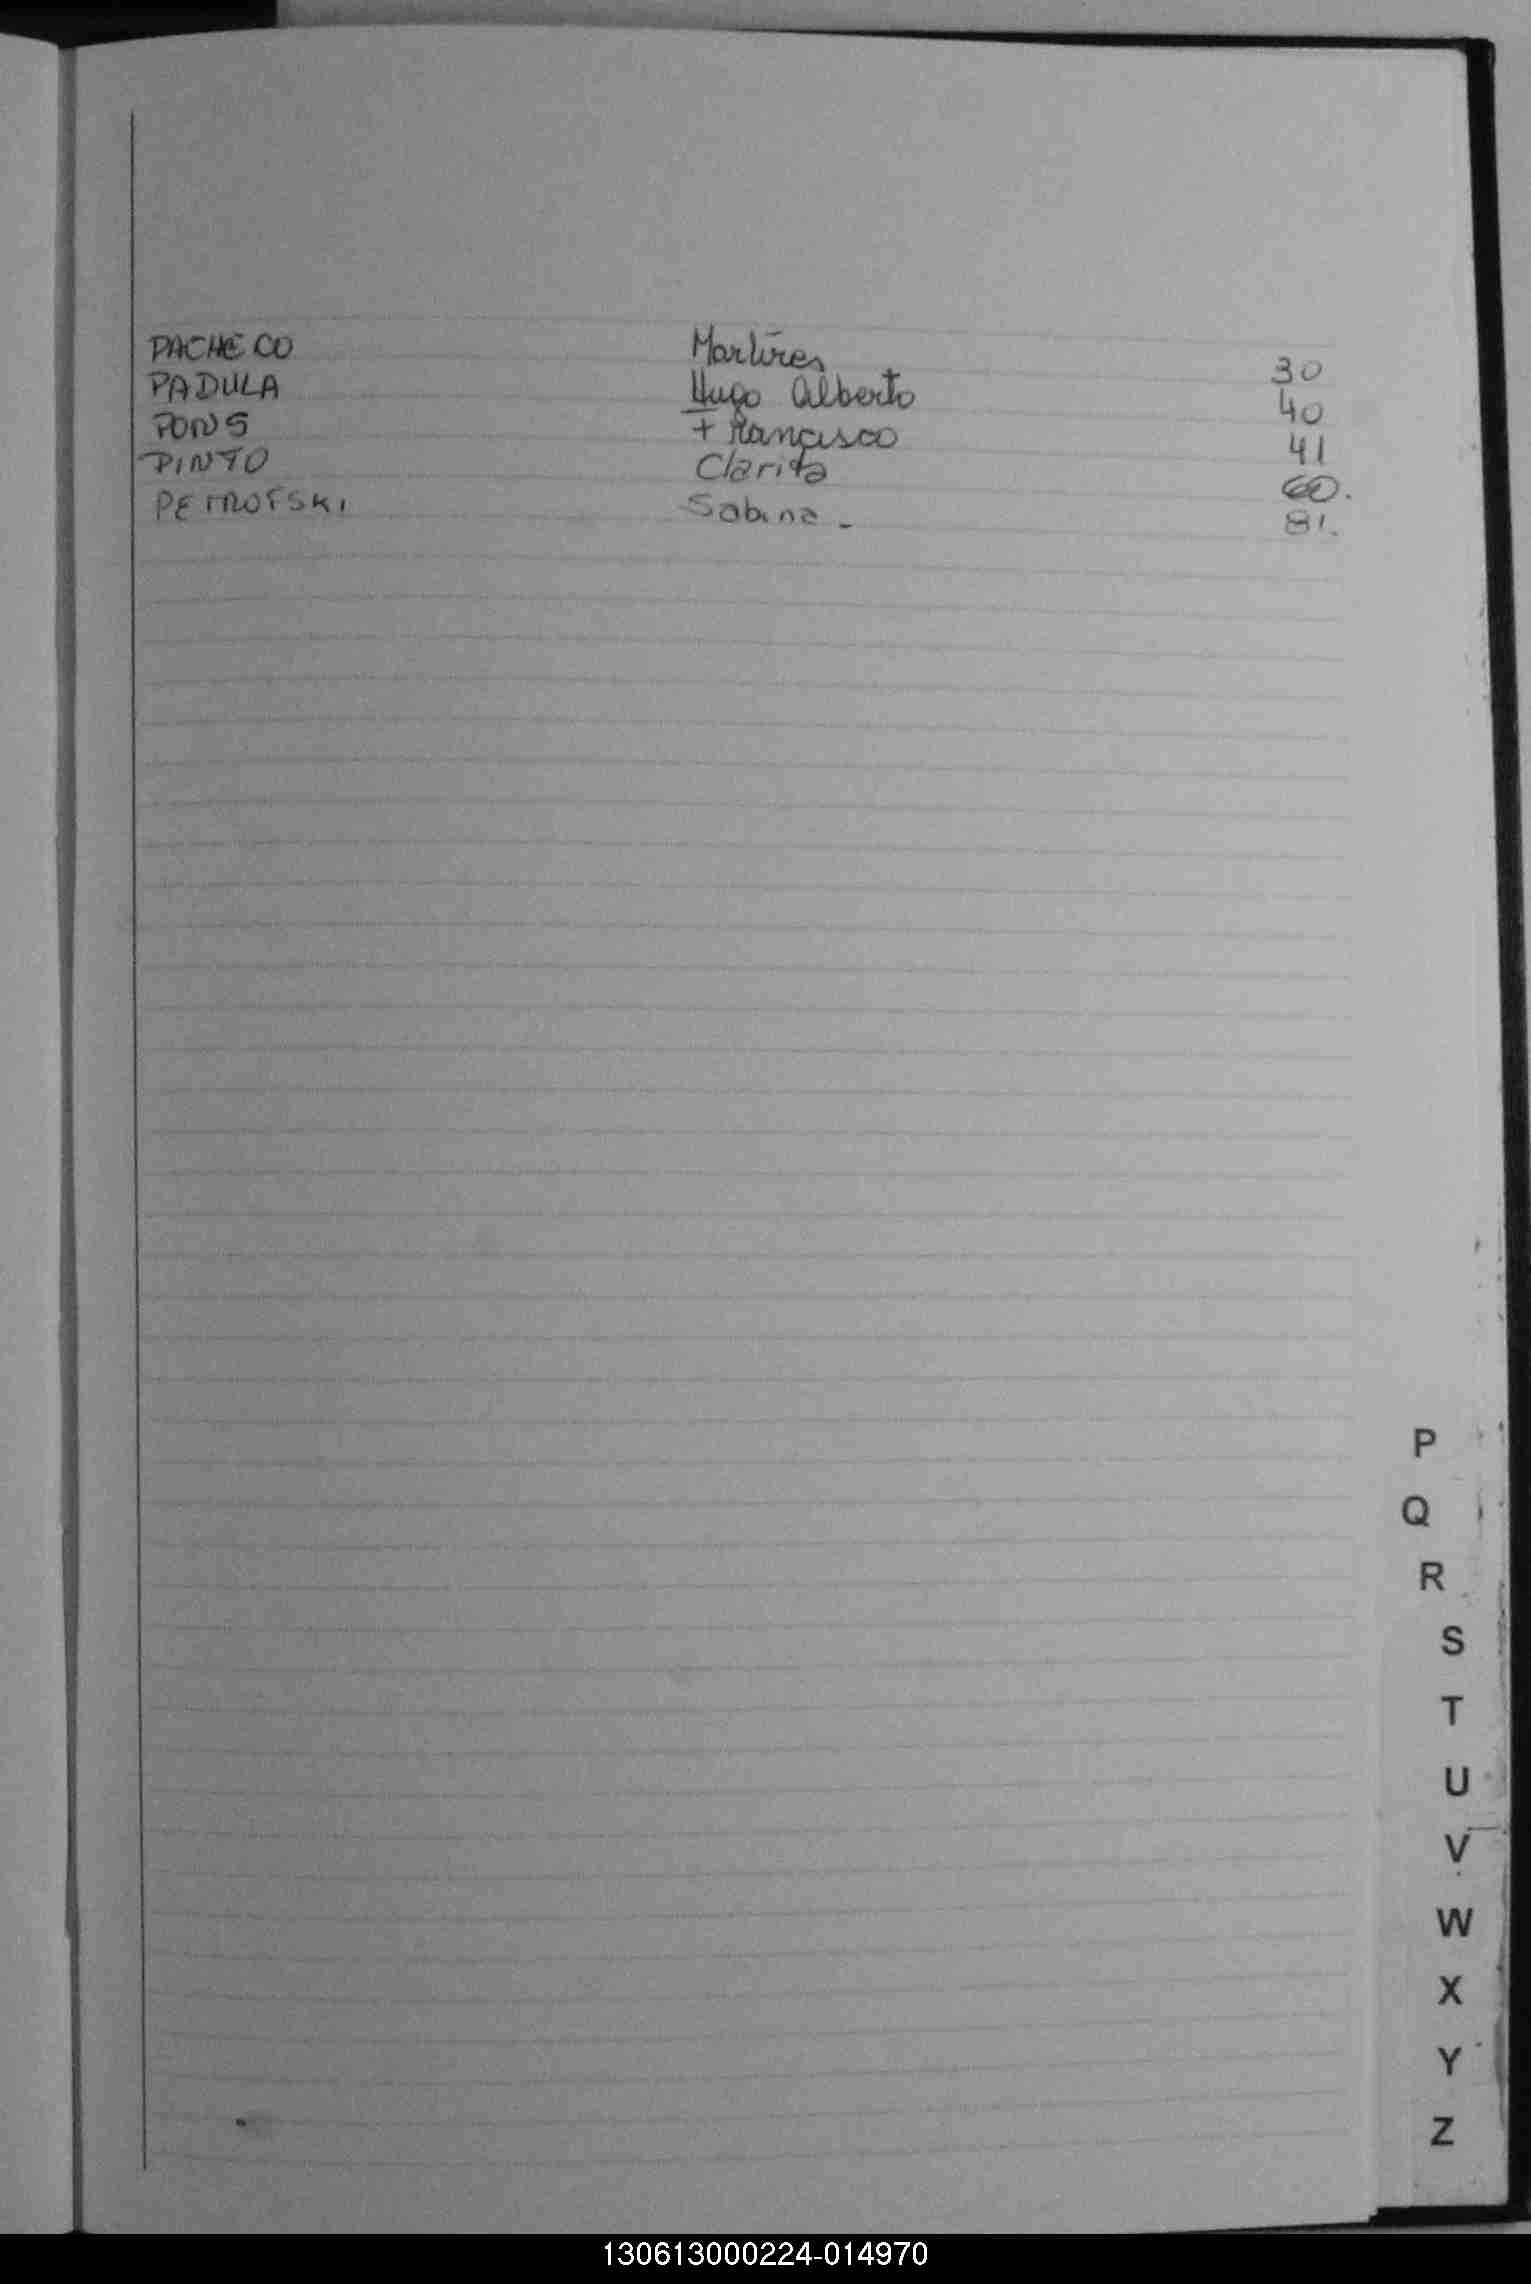 PACHECO Martires 30
PADULA Hugo Alberto 40
PONS Francisco 41
PINTO Clarita 60.
PETROFSKI Sabina - 81.
P
Q
R
S
T
U
V
W
X
Y
Z
130613000224-014970